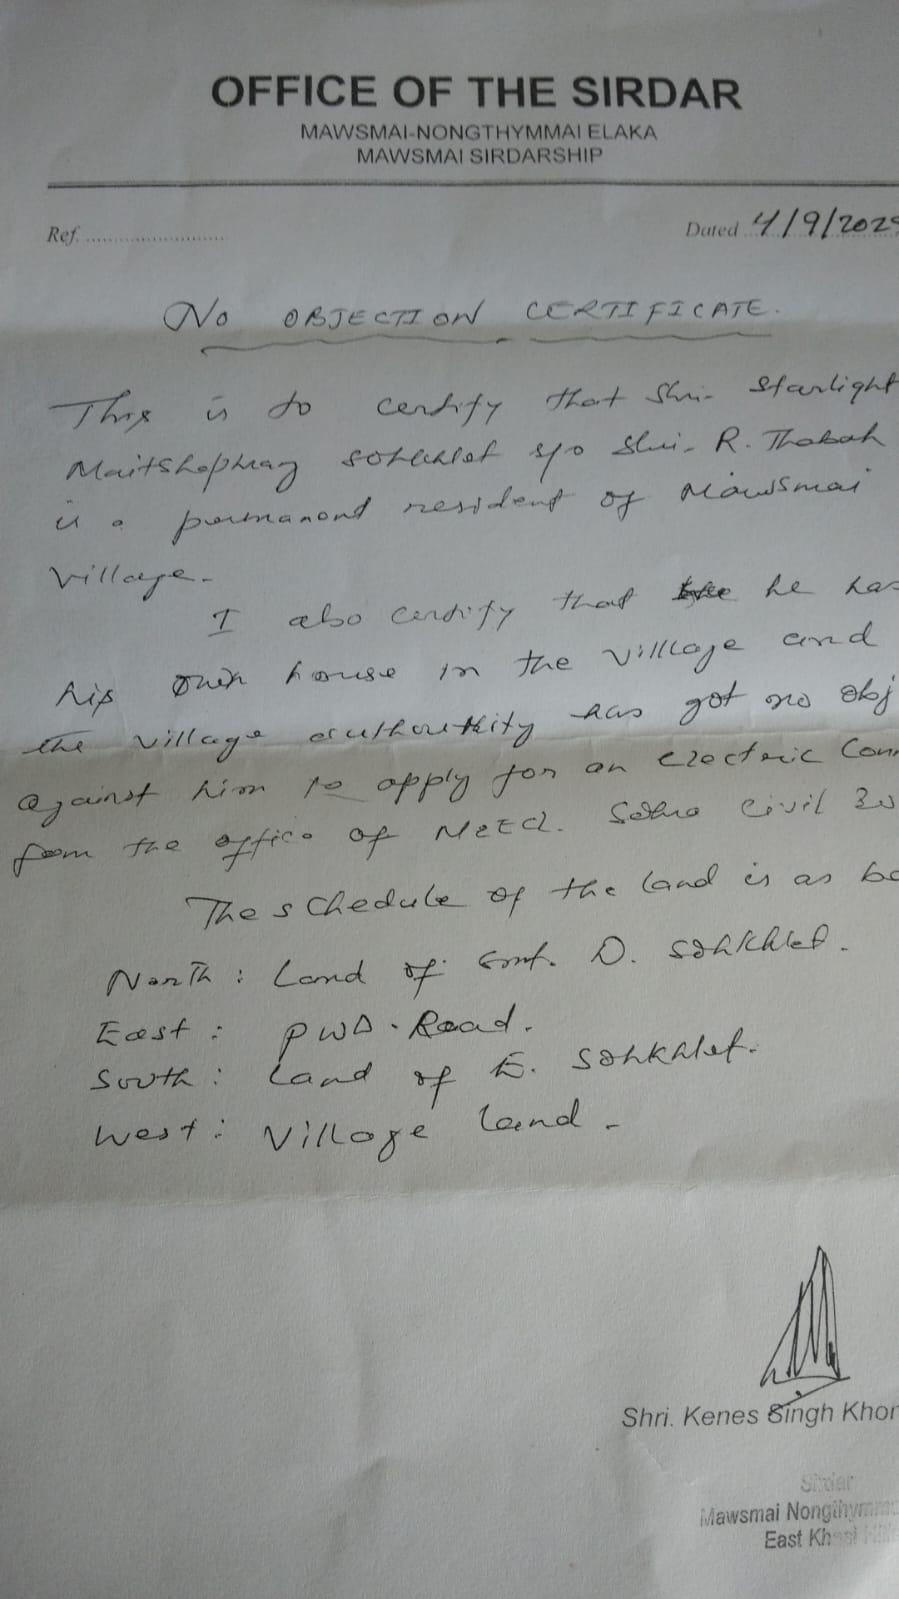 OFFICE OF THE SIRDAR
MAWSMAI-NONGTHYMMAI ELAKA
MAWSMAI SIRDARSHIP
Ref. ............................ Dated 4/9/202
NO OBJECTION CERTIFICATE.
This is to certify that Shri. Starlight
Sohkhlet s/o Shri. R. Thabah
is a permanent resident of Mawsmai
Village.
I also certify that he has
his own house in the village and
the village authority has got no obj
against him to apply for an electric Con
from the office of MeECl. Sohra Civil
The schedule of the land is as be
North : Land of Smt. D. Sohkhlet.
East : PWD. Road.
South : Land of E. Sohkhlet.
West : Village Land.
Shri. Kenes Singh Khon
Sirdar
Mawsmai Nongthymm
East Khasi Hills